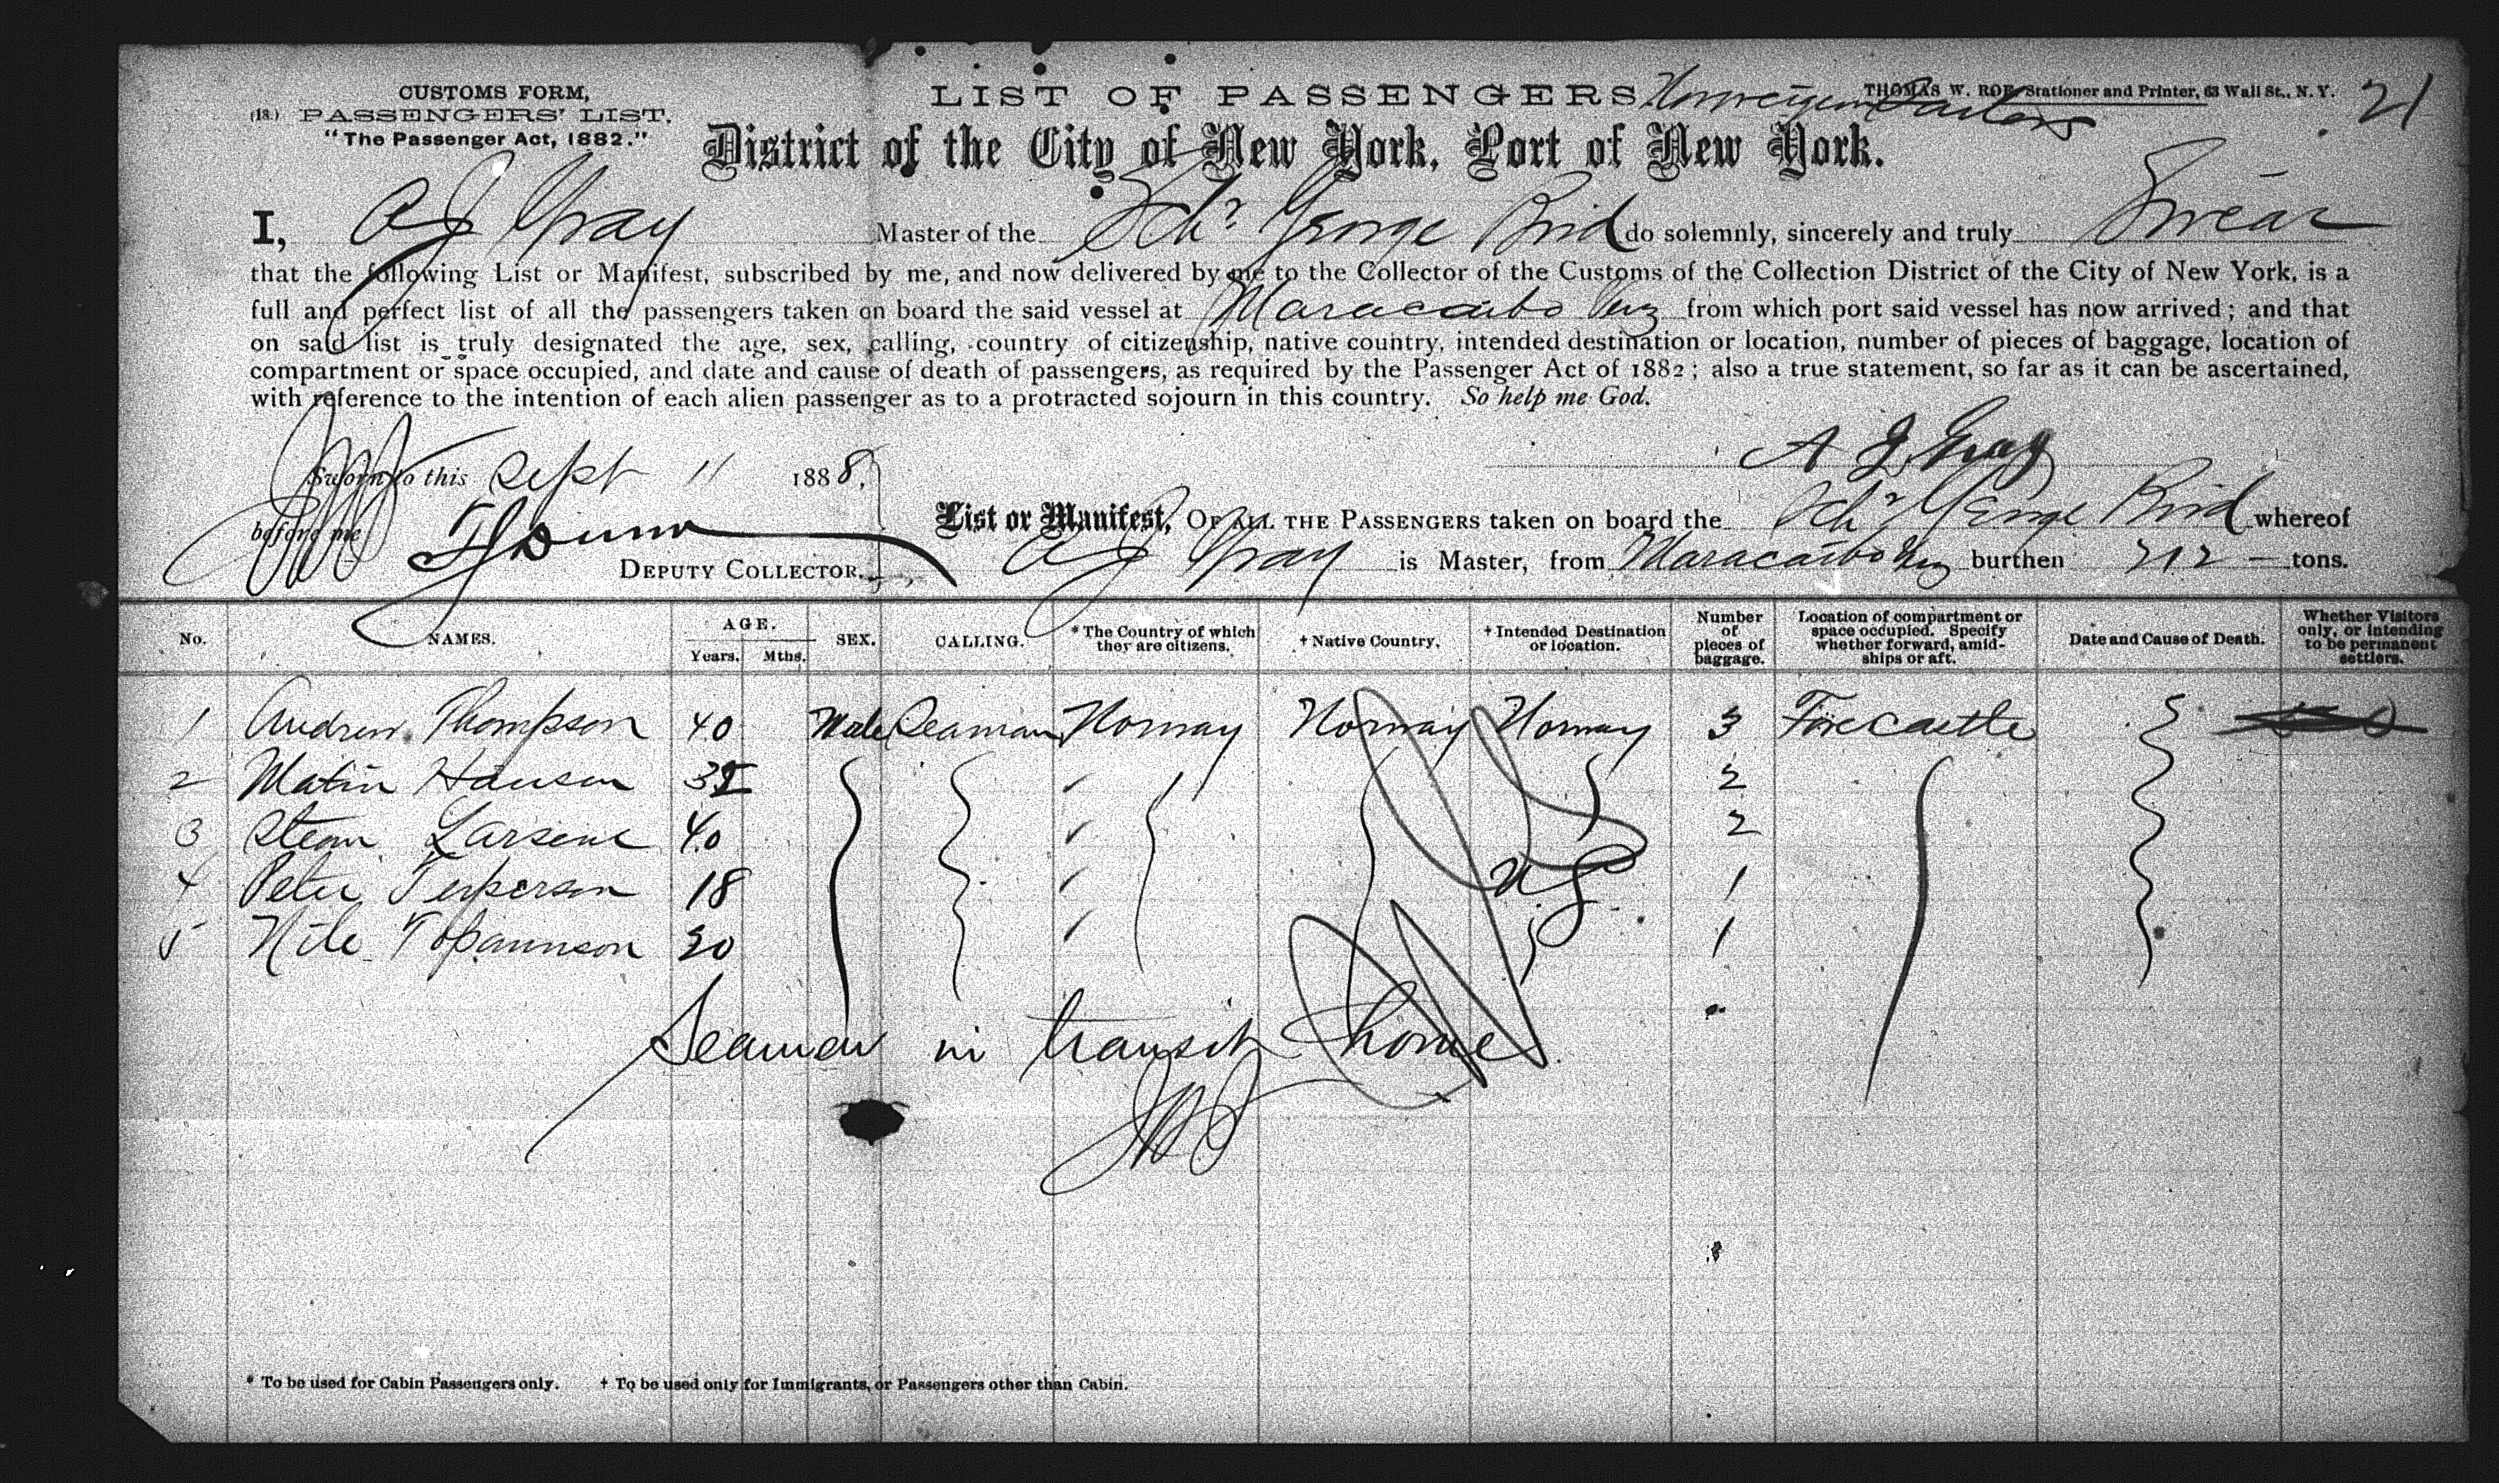 CUSTOMS FORM,
(18.) PASSENGERS' LIST.
"The Passenger Act, 1882."
LIST OF PASSENGERS Norweigan Sailors
THOMAS W. ROE, Stationer and Printer, 63 Wall St., N. Y.
21
District of the City of New York, Port of New York.
I, A J Gray Master of the Schr George Bird do solemnly, sincerely and truly Swear
that the following List or Manifest, subscribed by me, and now delivered by me to the Collector of the Customs of the Collection District of the City of New York, is a
full and perfect list of all the passengers taken on board the said vessel at Maracaibo Venz from which port said vessel has now arrived; and that
on said list is truly designated the age, sex, calling, country of citizenship, native country, intended destination or location, number of pieces of baggage, location of
compartment or space occupied, and date and cause of death of passengers, as required by the Passenger Act of 1882; also a true statement, so far as it can be ascertained,
with reference to the intention of each alien passenger as to a protracted sojourn in this country. So help me God.
A J Gray
Sworn to this Sept 11 1888,
before me
DEPUTY COLLECTOR.
List or Manifest, OF ALL THE PASSENGERS taken on board the Schr George Bird whereof
A J Gray is Master, from Maracaibo Venz burthen 212 — tons.
No. NAMES. AGE. Years. Mths. SEX. CALLING. * The Country of which they are citizens. † Native Country. † Intended Destination or location. Number of pieces of baggage. Location of compartment or space occupied. Specify whether forward, amidships or aft. Date and Cause of Death. Whether Visitors only, or intending to be permanent settlers.
1 Andrew Thompson 40 Male Seaman Norway Norway Norway 3 Forecastle
2 Matin Hanson 2
3 Larsene 40 2
4 Peter 18 U S 1
5 Nile 1
Seamen in transit home
* To be used for Cabin Passengers only. † To be used only for Immigrants, or Passengers other than Cabin.